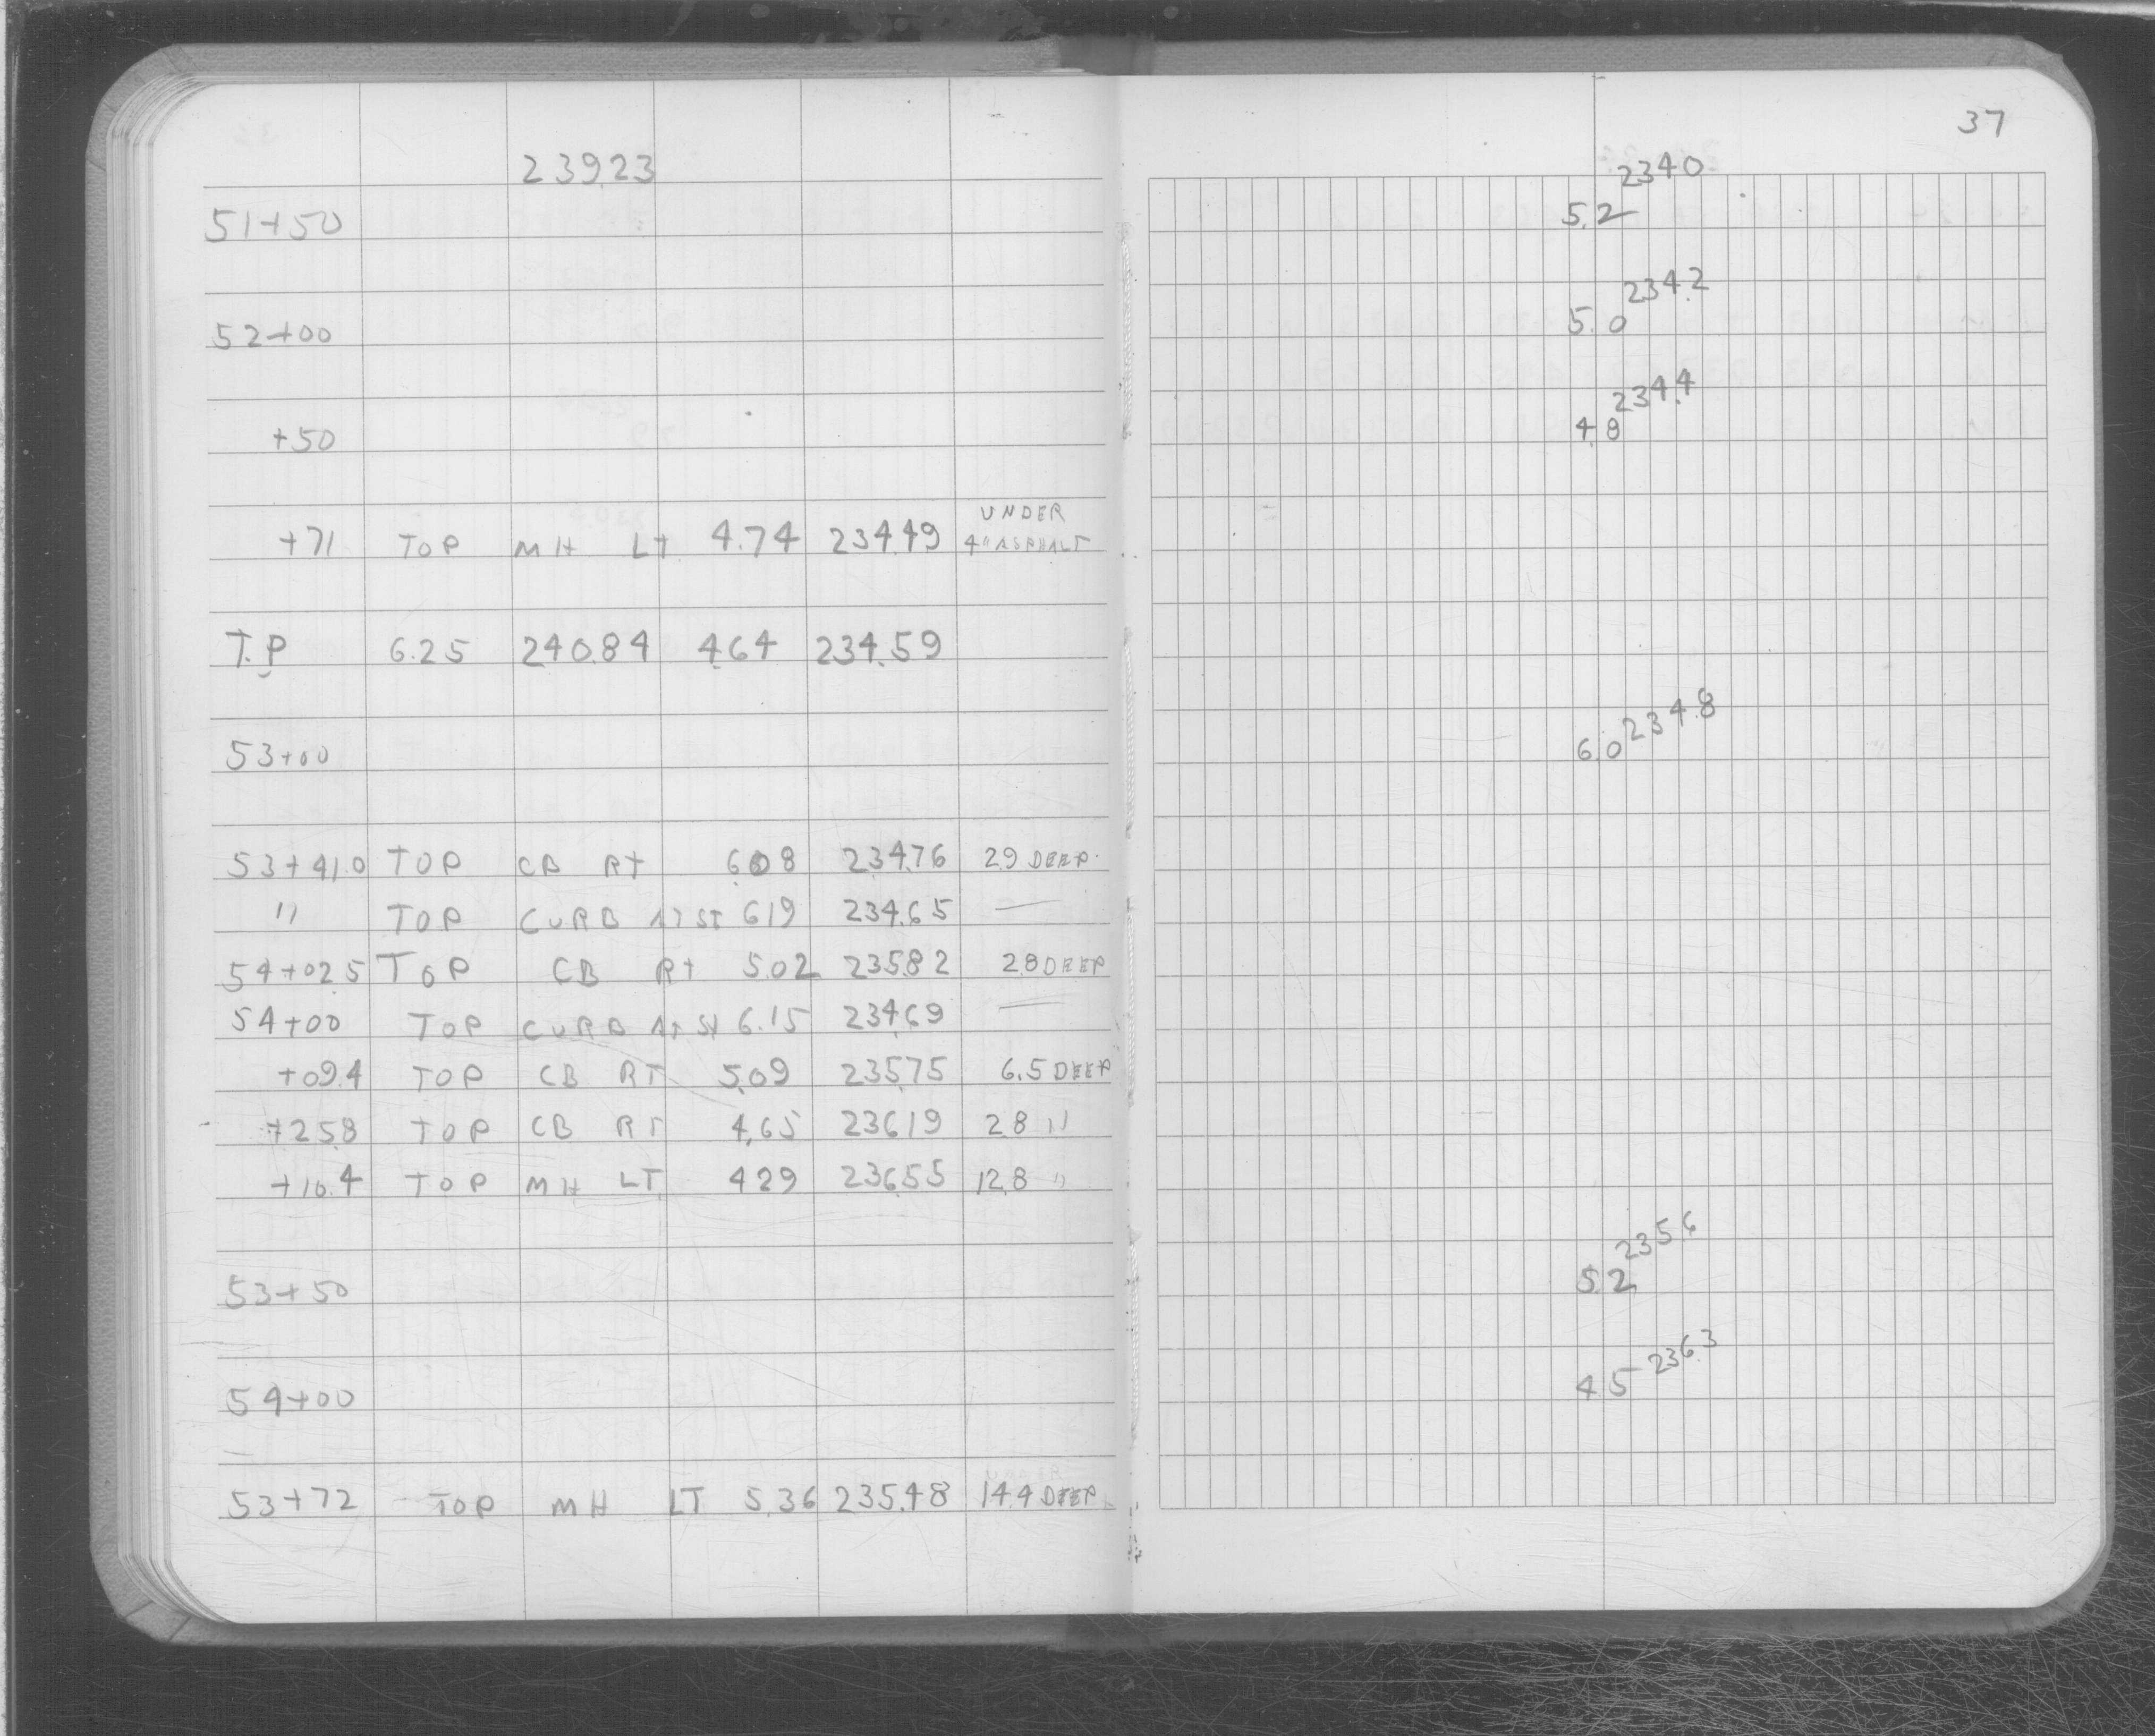 37
239.23
51+50 5.2 234.0
52+00 5.0 234.2
+50 4.8 234.4
+71 TOP MH LT 4.74 234.49 UNDER
4" ASPHALT
T.P 6.25 240.84 4.64 234.59
53+00 6.0 234.8
53+41.0 TOP CB RT 6.08 234.76 2.9 DEEP
" TOP CURB AT ST 6.19 234.65 —
54+02.5 TOP CB RT 5.02 235.82 2.8 DEEP
54+00 TOP CURB AT ST 6.15 234.69 —
+09.4 TOP CB RT 5.09 235.75 6.5 DEEP
+25.8 TOP CB RT 4.65 236.19 2.8 "
+10.4 TOP MH LT 4.29 236.55 12.8 "
53+50 5.2 235.6
54+00 4.5 236.3
53+72 TOP MH LT 5.36 235.48 14.4 DEEP